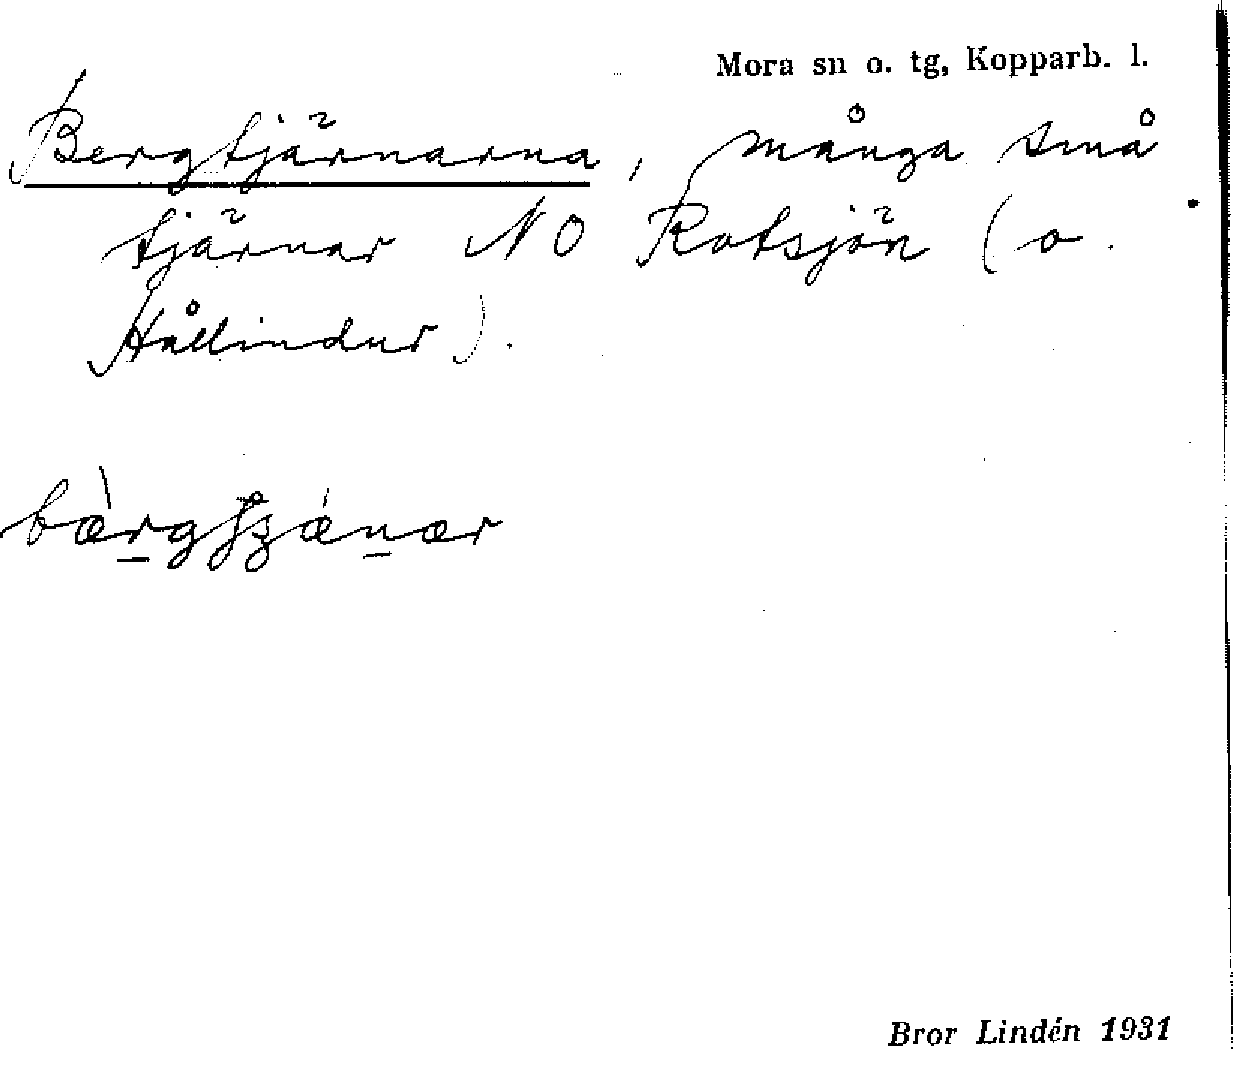 Mora sn o. tg, Kopparb. l.
Bergtjärnarna, många små
tjärnar NO Rotsjön (o.
Hållindur).
Bror Lindén 1931